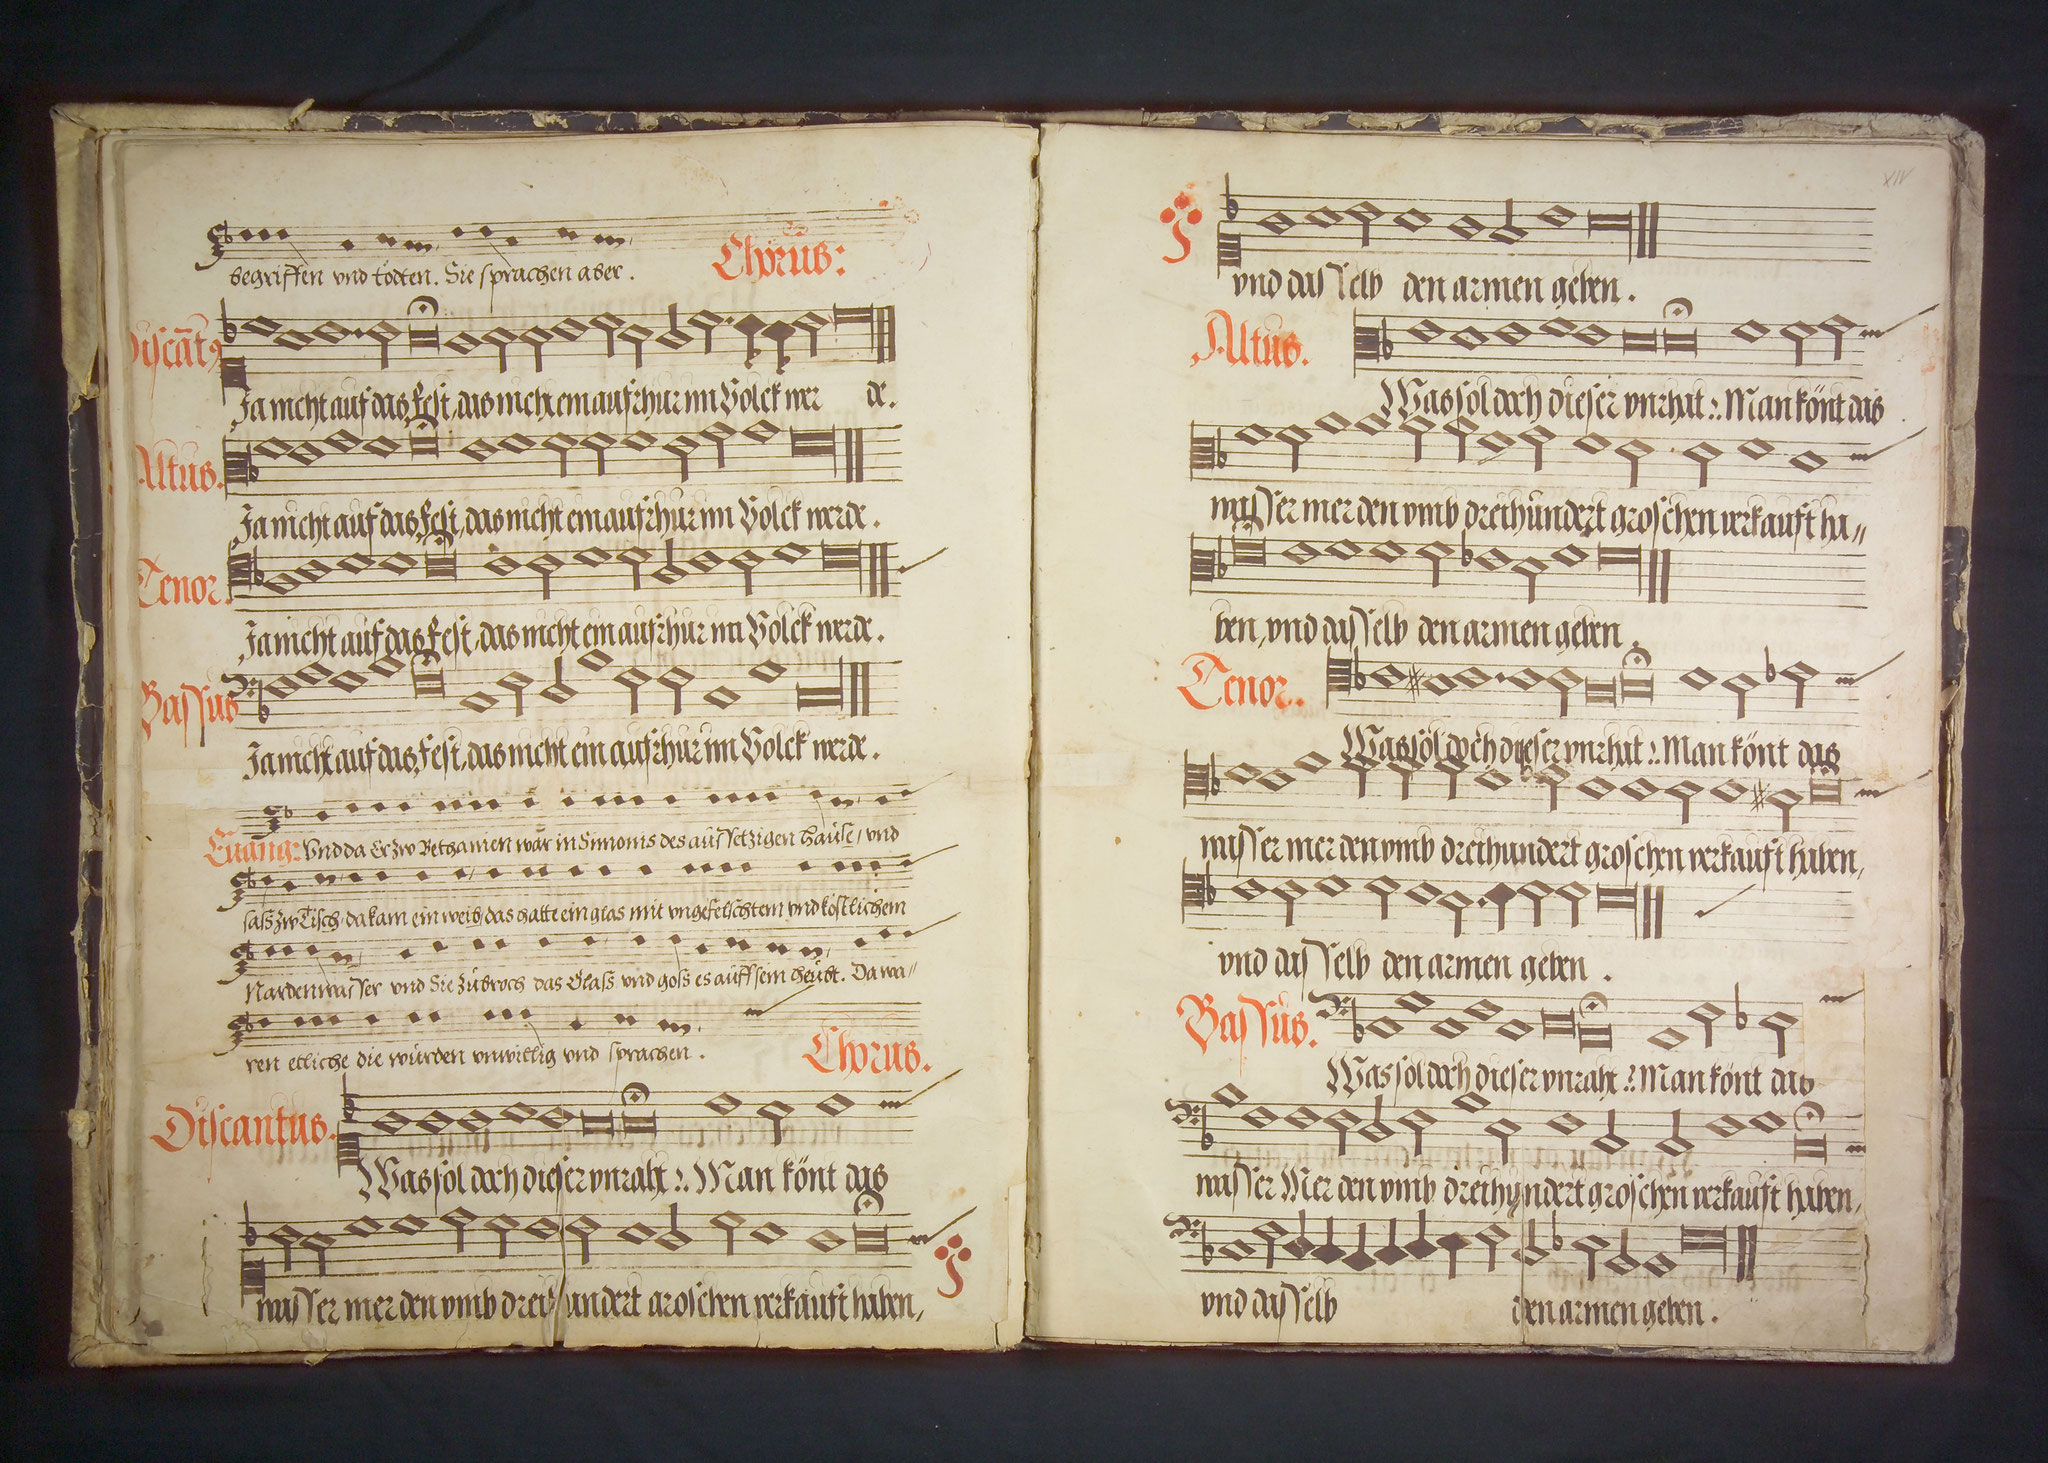 begriffen vnd tödten. Sie sprachen aber.
Chorus:
Discãt9
Ja nicht auf das Fest, das nicht ein aufrhur im Volck wer de.
Altus.
Ja nicht auf das Fest, das nicht ein aufrhur im Volck werde.
Tenor.
Ja nicht auf das Fest, das nicht ein aufrhur im Volck werde.
Bassus
Ja nicht auf das Fest, das nicht ein aufrhur im Volck werde.
Euang: Vnd da Er zw Bethanien war in Simonis des aussetzigen hause, vnd
sass zw Tisch, da kam ein weib, das hatte ein glas mit vngefelschtem vnd köstlichem
Nardenwasser vnd Sie zubroch das Glass vnd goss es auff sein heubt. Da wa//
ren etliche die wurden vnwillig vnd sprachen.
Chorus.
Discantus.
Was sol doch dieser vnraht :. Man könt das
wasser mer den vmb dreihundert groschen verkauft haben,
XIV
vnd dasselb den armen geben.
Altus.
Was sol doch dieser vnrhat :. Man könt das
wasser mer den vmb dreihundert groschen verkauft ha//
ben, vnd dasselb den armen geben.
Tenor.
Was sol doch dieser vnrhat :. Man könt das
wasser mer den vmb dreihundert groschen verkauft haben,
vnd dasselb den armen geben.
Bassus.
Was sol doch dieser vnraht :. Man könt das
wasser Mer den vmb dreihundert groschen verkauft haben,
vnd dasselb den armen geben.